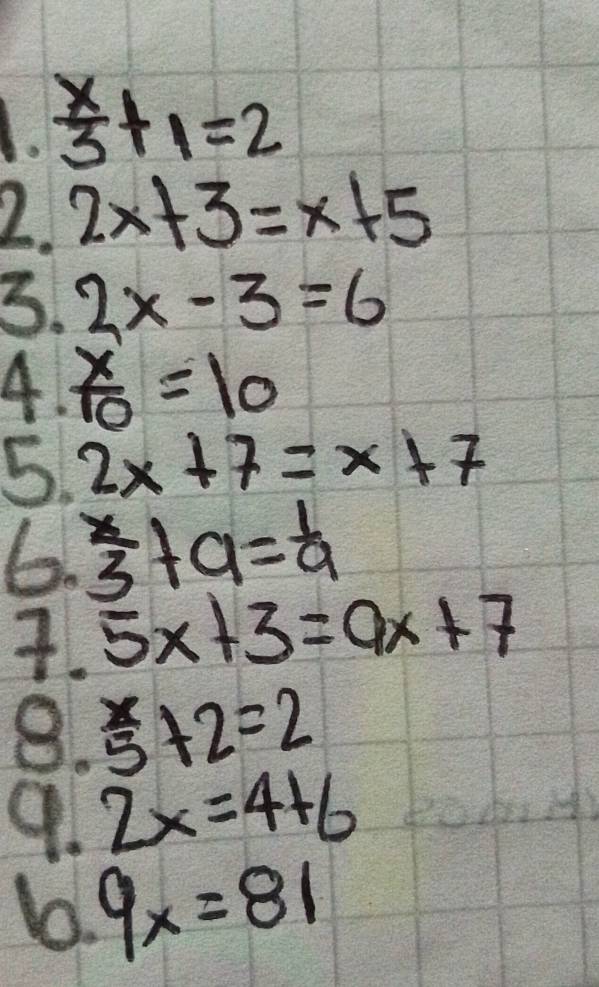 1. x/3 + 1 = 2
2. 2x + 3 = x + 5
3. 2x - 3 = 6
4. x/10 = 10
5. 2x + 7 = x + 7
6. x/3 + 9 = 1/9
7. 5x + 3 = 9x + 7
8. x/5 + 2 = 2
9. 2x = 4 + 6
10. 9x = 81